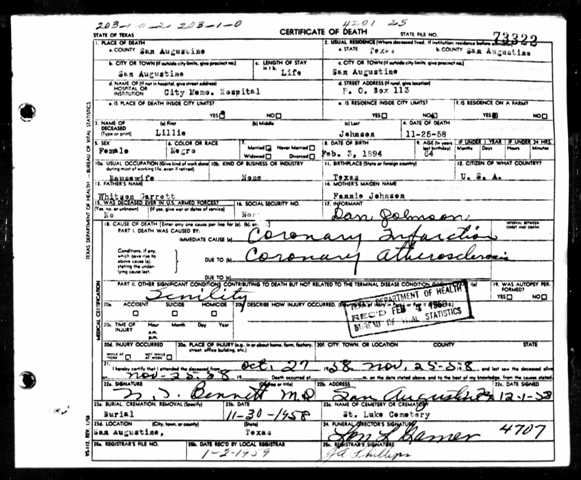 203-1-0
4201 25
STATE OF TEXAS
CERTIFICATE OF DEATH
STATE FILE NO. 73322
1. PLACE OF DEATH
2. USUAL RESIDENCE (Where deceased lived. If institution: residence before
a. COUNTY San Augustine
a. STATE Texas
b. COUNTY San Augustine
b. CITY OR TOWN (If outside city limits, give precinct no.)
c. LENGTH OF STAY
c. CITY OR TOWN (If outside city limits, give precinct no.)
San Augustine
Life
San Augustine
d. NAME OF (If not in hospital, give street address)
HOSPITAL OR
INSTITUTION
City Memo. Hospital
d. STREET ADDRESS (If rural, give location)
P. O. Box 113
e. IS PLACE OF DEATH INSIDE CITY LIMITS?
YES NO
e. IS RESIDENCE INSIDE CITY LIMITS?
YES NO
f. IS RESIDENCE ON A FARM?
YES NO
3. NAME OF
DECEASED
(Type or print)
(a) First
Lillie
(b) Middle
(c) Last
Johnson
4. DATE OF DEATH
11-25-58
5. SEX
Female
6. COLOR OR RACE
Negro
7. Married Never Married
Widowed Divorced
8. DATE OF BIRTH
Feb. 3, 1894
9. AGE (In years last birthday)
64
IF UNDER 1 YEAR
Months Days
IF UNDER 24 HRS.
Hours Minutes
10a. USUAL OCCUPATION (Give kind of work done during most of working life, even if retired)
Housewife
10b. KIND OF BUSINESS OR INDUSTRY
None
11. BIRTHPLACE (State or foreign country)
Texas
12. CITIZEN OF WHAT COUNTRY?
U. S. A.
13. FATHER'S NAME
Whitson Garrett
14. MOTHER'S MAIDEN NAME
Fannie Johnson
15. WAS DECEASED EVER IN U.S. ARMED FORCES?
(Yes, no, or unknown) (If yes, give war or dates of service)
No
16. SOCIAL SECURITY NO.
17. INFORMANT
Dan Johnson
18. CAUSE OF DEATH
PART I. DEATH WAS CAUSED BY:
IMMEDIATE CAUSE (a)
Coronary Infarction
Conditions, if any, which gave rise to above cause (a), stating the underlying cause last.
DUE TO (b)
Coronary Atherosclerosis
DUE TO (c)
PART II. OTHER SIGNIFICANT CONDITIONS CONTRIBUTING TO DEATH BUT NOT RELATED TO THE TERMINAL DISEASE CONDITION
Senility
19. WAS AUTOPSY PERFORMED?
YES NO
20a. ACCIDENT SUICIDE HOMICIDE
20b. DESCRIBE HOW INJURY OCCURRED.
DEPARTMENT OF HEALTH
REC'D FEB
BUREAU OF VITAL STATISTICS
20c. TIME OF INJURY
Hour Month Day Year
20d. INJURY OCCURRED
20e. PLACE OF INJURY (e.g. in or about home, farm, factory, street, office building, etc.)
20f. CITY, TOWN, OR LOCATION
COUNTY
STATE
21. I hereby certify that I attended the deceased from Oct. 27 58 Nov. 25-58 and last saw the deceased alive
Nov-25-58 Death occurred at
22a. SIGNATURE
(Degree or title)
Bennett MD
22b. ADDRESS
San Augustine
22c. DATE SIGNED
12-1-58
23a. BURIAL, CREMATION, REMOVAL (Specify)
Burial
23b. DATE
11-30-1958
23c. NAME OF CEMETERY OR CREMATORY
St. Luke Cemetery
23d. LOCATION (City, town, or county) (State)
San Augustine, Texas
24. FUNERAL DIRECTOR'S SIGNATURE
4707
25a. REGISTRAR'S FILE NO.
25b. DATE REC'D BY LOCAL REGISTRAR
1-2-1959
25c. REGISTRAR'S SIGNATURE
Phillips
TEXAS DEPARTMENT OF HEALTH - BUREAU OF VITAL STATISTICS
MEDICAL CERTIFICATION